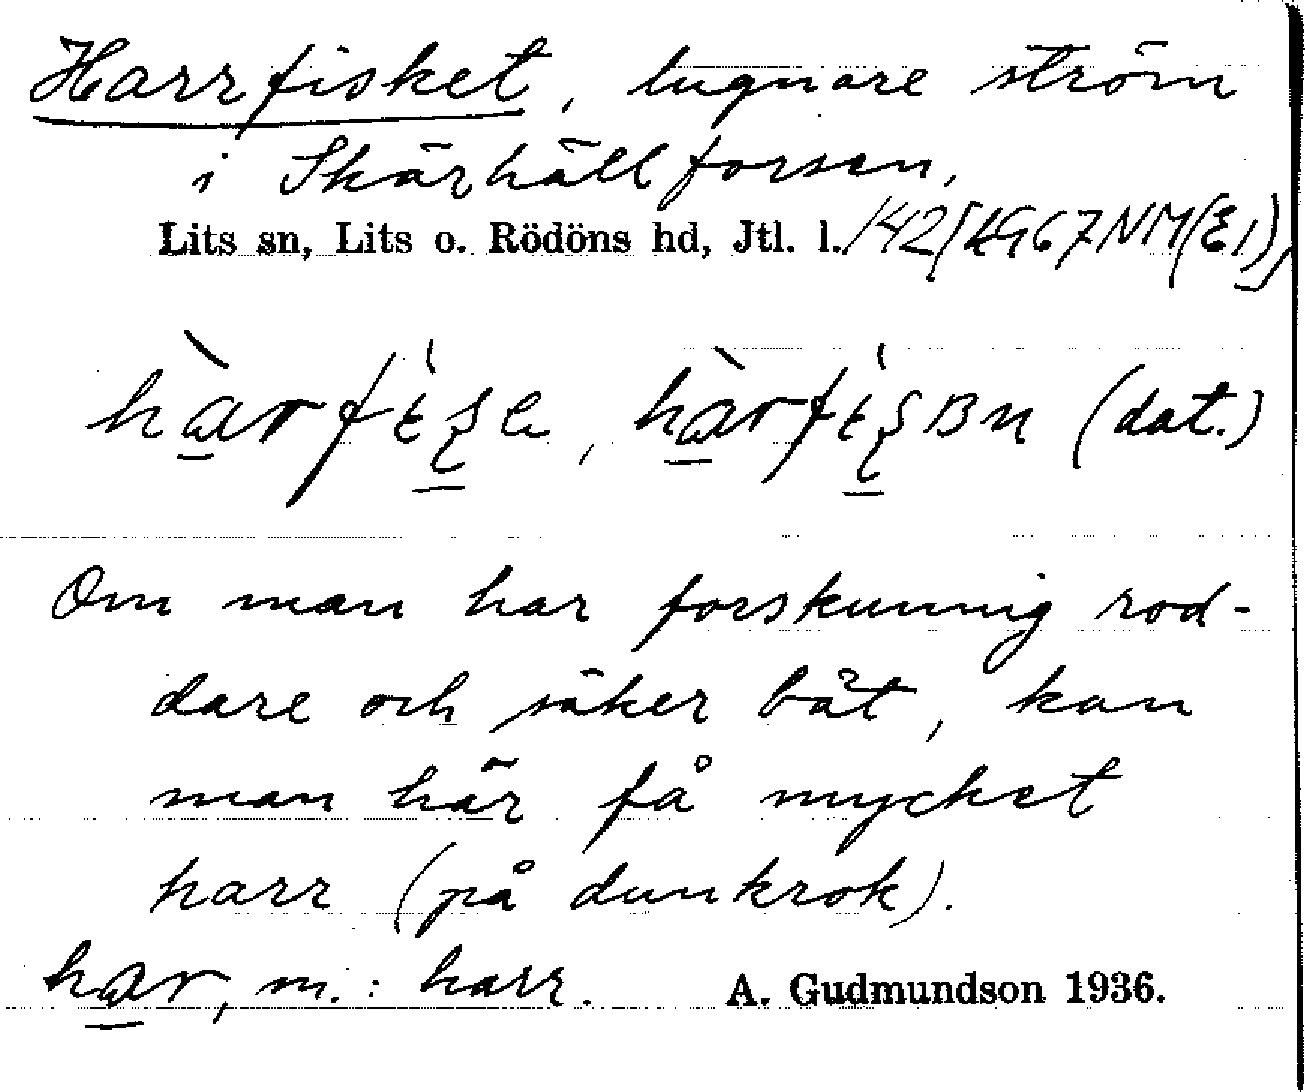 Harrfisket, lugnare ström
i Skärhällforsen,
Lits sn, Lits o. Rödöns hd, Jtl. l.
(dat.)
Om man har forskunnig rod-
dare och säker båt, kan
man här få mycket
harr (på dunkrok).
har, m.: harr. A. Gudmundson 1936.